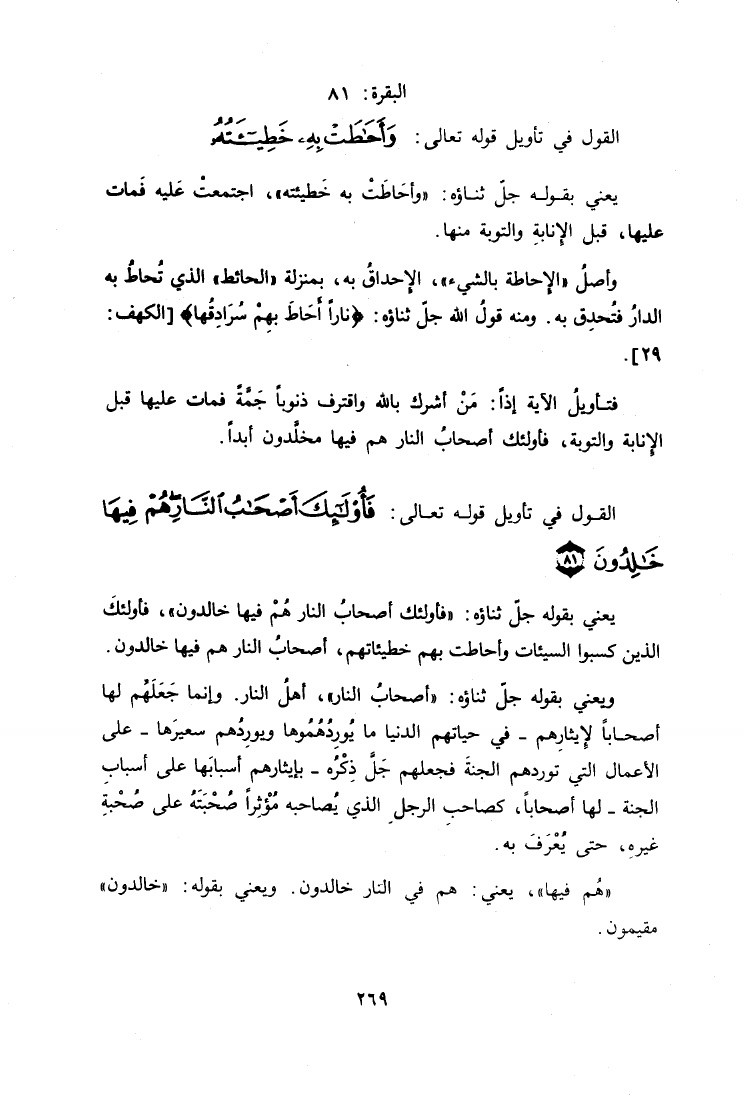 البقرة: ٨١
القول في تأويل قوله تعالى: وَأَحَٰطَتْ بِهِۦ خَطِيٓـَٔتُهُۥ
يعني بقولـه جلّ ثنـاؤه: «وأحَاطَتْ به خَطيئته»، اجتمعتْ عَليه فَمات
عليها، قبل الإنابةِ والتوبة منها.
وأصلُ «الإحاطة بالشيء»، الإحداقُ به، بمنزلة «الحائط» الذي تُحاطُ به
الدارُ فتُحدِق به. ومنه قولُ الله جلّ ثناؤه: ﴿ناراً أَحَاطَ بِهِمْ سُرَادِقُها﴾ [الكهف:
٢٩].
فتـأويلُ الآية إذاً: مَنْ أشرك بالله واقترف ذنوباً جَمَّةً فمات عليها قبل
الإنابة والتوبة، فأولئك أصحابُ النار هم فيها مخلَّدون أبداً.
القـول في تأويل قولـه تعـالى: فَأُوْلَٰٓئِكَ أَصْحَٰبُ ٱلنَّارِۖ هُمْ فِيهَا
خَٰلِدُونَ ٨١
يعني بقوله جلّ ثناؤه: «فأولئك أصحابُ النار هُمْ فيها خالدون»، فأولئكَ
الذين كسبوا السيئات وأحاطت بهم خطيئاتهم، أصحابُ النار هم فيها خالدون.
ويعني بقوله جلّ ثناؤه: «أصحابُ النار»، أهلُ النار. وإنما جَعَلَهُم لها
أصحـاباً لإيثارهم - في حياتهم الدنيا ما يُورِدُهُموها ويوردُهم سعيرَها - على
الأعمال التي توردهم الجنةَ فجعلهم جَلَّ ذِكْرُه - بإيثارهم أسبابَها على أسبابِ
الجنة - لها أصحاباً، كصاحبِ الرجلِ الذي يُصاحبه مُؤْثِراً صُحْبَتَهُ على صُحْبةِ
غيرِه، حتى يُعْرَفَ به.
«هُم فيها»، يعني: هم في النار خالدون. ويعني بقوله: «خالدون»
مقيمون.
٢٦٩